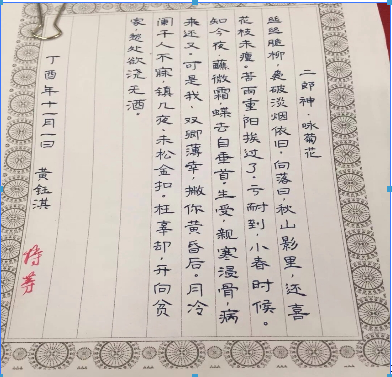 二郎神·咏菊花
丝丝脆柳，袅破淡烟依旧。向落日，秋山影里，还喜
花枝未瘦。苦雨重阳挨过了，亏耐到，小春时候。
知今夜，蘸微霜，蝶去自垂首。生受，新寒浸骨，病
来还又。可是我，双卿薄幸，撇你黄昏后。月冷
阑干人不寐，镇几夜，未松金扣。枉辜却，开向贫
家愁处欲浇无酒。
丁酉年十一月一日 黄钰淇